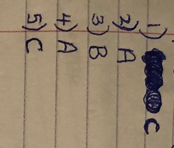 1) C
2) A
3) B
4) A
5) C